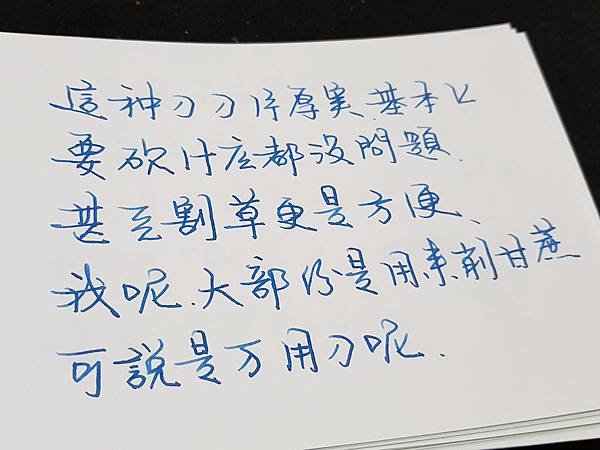 這种刀刀片厚実.基本上
要砍什広都沒問題.
甚至割草更是方便、
我呢.大部份是用来削甘蔗
可說是万用刀呢.